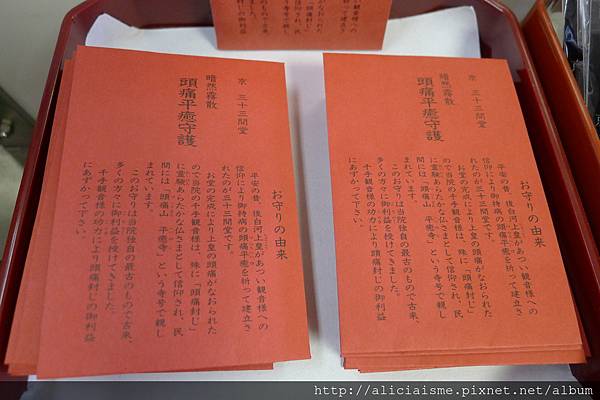 京 三十三間堂
暗然霧散
頭痛平癒守護
お守りの由来
平安の昔、後白河上皇があつい観音様への
信仰により御持病の頭痛平癒を祈って建立さ
れたのが三十三間堂です。
お堂の完成により上皇の頭痛がなおられた
ので当院の千手観音様は、殊に「頭痛封じ」
に霊験あらたかな仏さまとして信仰され、民
間には「頭痛山 平癒寺」という寺号で親し
まれています。
このお守りは当院独自の最古のもので古来、
多くの方々に御利益を授けてきました。
千手観音様の功力により頭痛封じの御利益
にあずかって下さい。
京 三十三間堂
暗然霧散
頭痛平癒守護
お守りの由来
平安の昔、後白河上皇があつい観音様への
信仰により御持病の頭痛平癒を祈って建立さ
れたのが三十三間堂です。
お堂の完成により上皇の頭痛がなおられた
ので当院の千手観音様は、殊に「頭痛封じ」
に霊験あらたかな仏さまとして信仰され、民
間には「頭痛山 平癒寺」という寺号で親し
まれています。
このお守りは当院独自の最古のもので古来、
多くの方々に御利益を授けてきました。
千手観音様の功力により頭痛封じの御利益
にあずかって下さい。
http://aliciaisme.pixnet.net/album